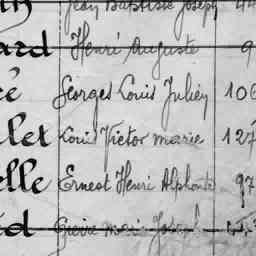 Jean Baptiste Joseph 44
ard Henri Auguste 9
é Georges Louis Julien 106
llet Louis Victor marie 127
elle Ernest Henri Alphonse 97
d Pierre Marie Joseph